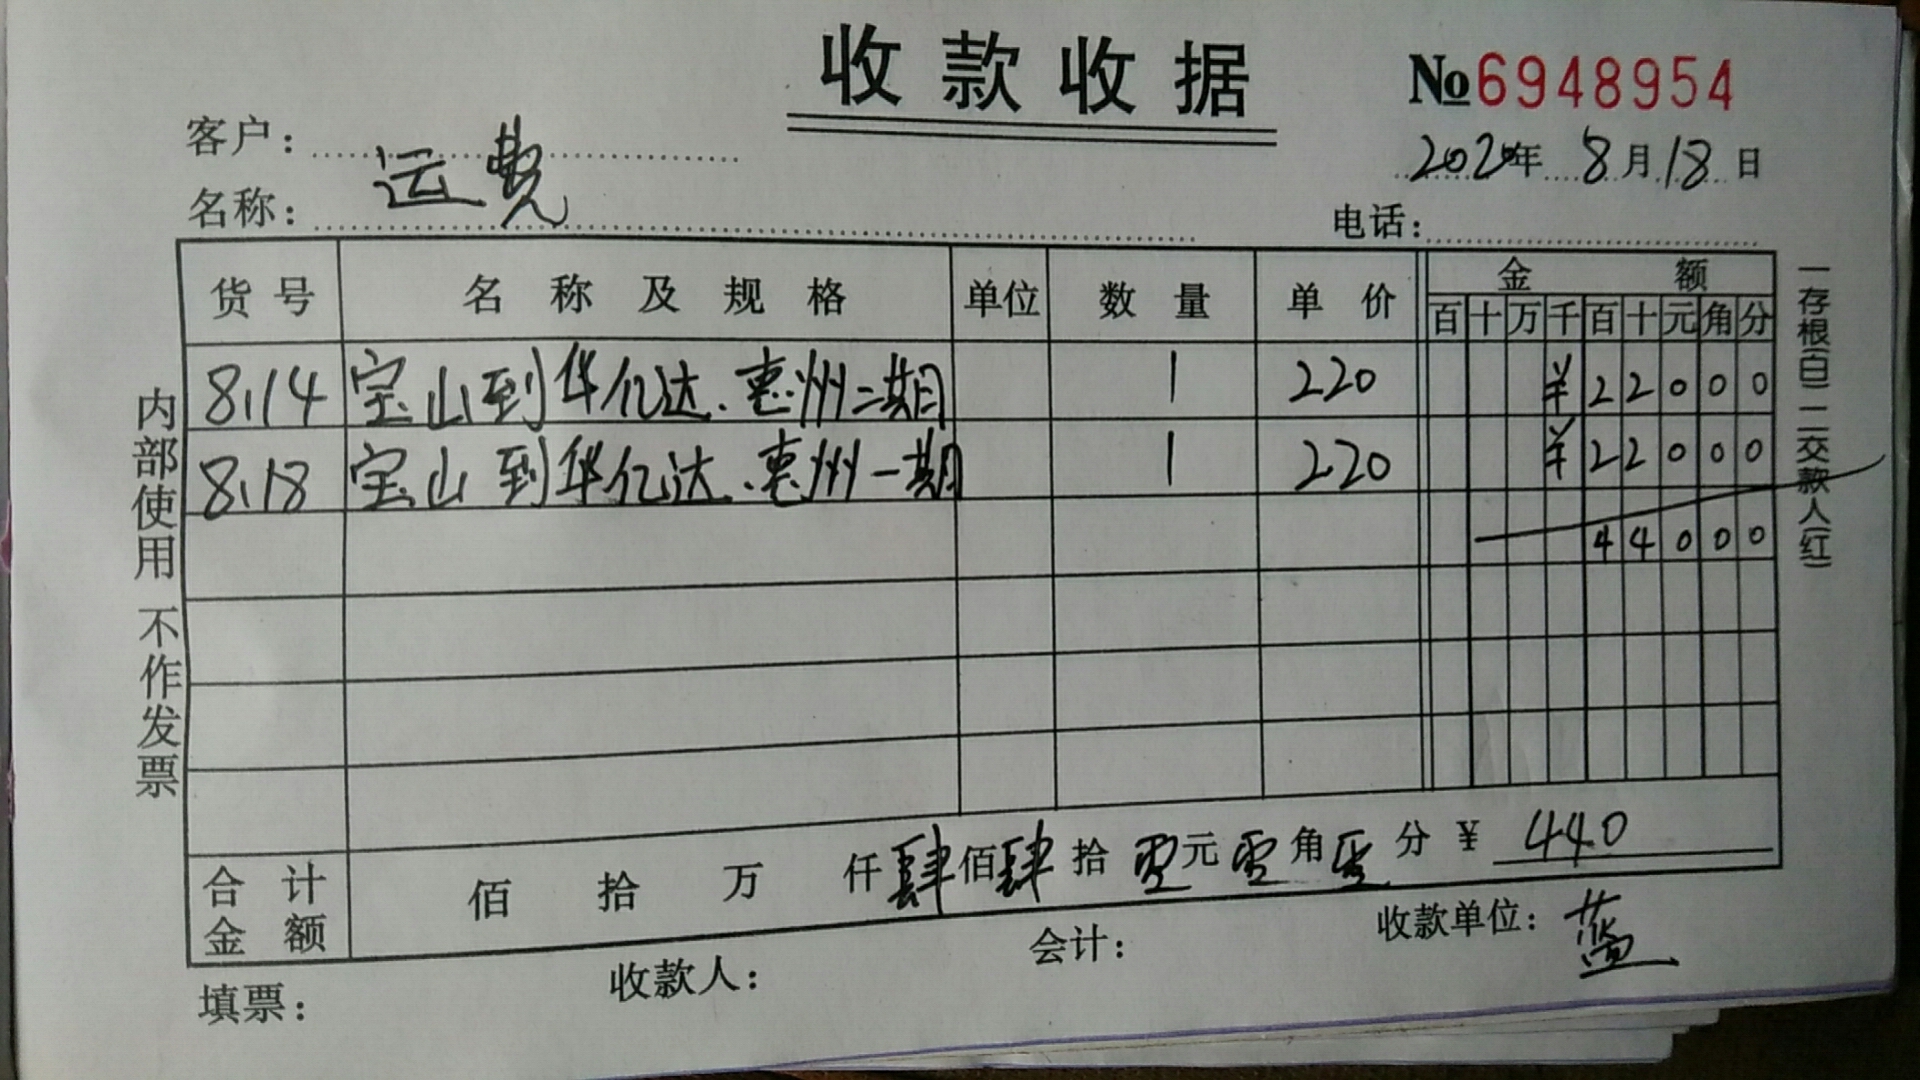 收款收据
No 6948954
客户：
2020年 8月18日
名称： 运费
电话：
货号 名称及规格 单位 数量 单价 金额
百 十 万 千 百 十 元 角 分
8.14 宝山到华亿达.惠州二期 1 220 ¥ 2 2 0 0 0
8.18 宝山到华亿达.惠州一期 1 220 ¥ 2 2 0 0 0
4 4 0 0 0
合计金额 佰 拾 万 仟 肆佰 肆拾 零元 零角 零分 ¥ 440
填票： 收款人： 会计： 收款单位： 蓝
内部使用 不作发票
一存根(白) 二交款人(红)